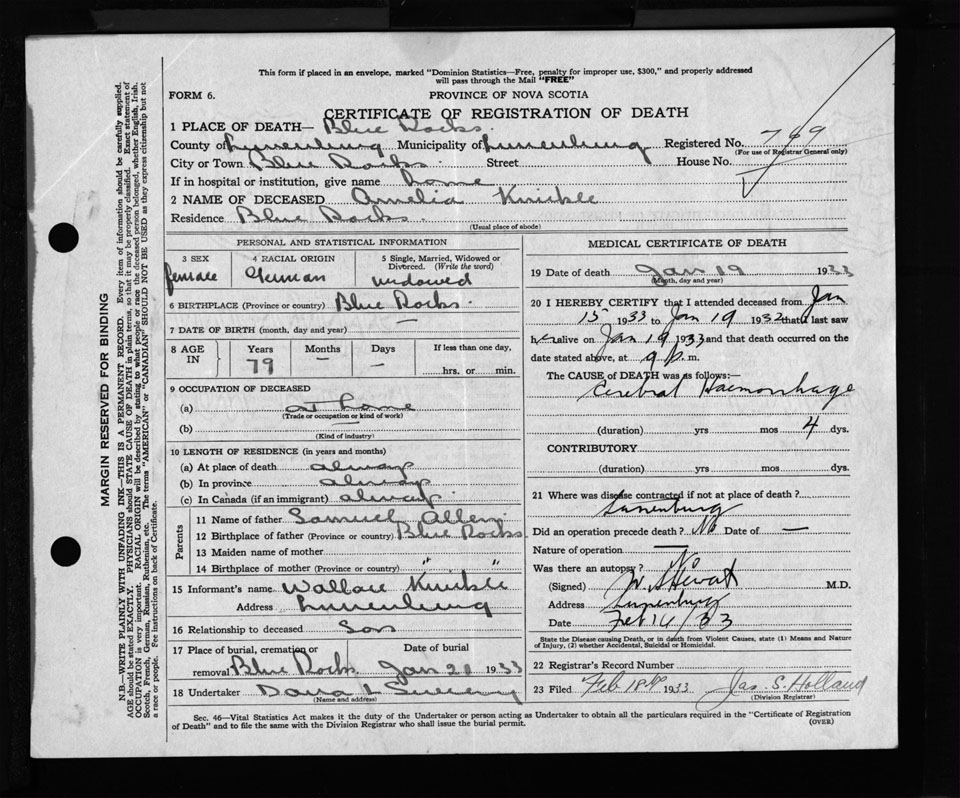 This form if placed in an envelope, marked "Dominion Statistics—Free, penalty for improper use, $300," and properly addressed
will pass through the Mail "FREE"
FORM 6.
PROVINCE OF NOVA SCOTIA
CERTIFICATE OF REGISTRATION OF DEATH
1 PLACE OF DEATH— Blue Rocks
County of Lunenburg Municipality of Lunenburg Registered No. 769
(For use of Registrar General only)
City or Town Blue Rocks Street House No.
If in hospital or institution, give name home
2 NAME OF DECEASED Amelia Knickle
Residence Blue Rocks
(Usual place of abode)
PERSONAL AND STATISTICAL INFORMATION
3 SEX 4 RACIAL ORIGIN 5 Single, Married, Widowed or
Divorced. (Write the word)
female German widowed
6 BIRTHPLACE (Province or country) Blue Rocks
7 DATE OF BIRTH (month, day and year) —
8 AGE IN Years Months Days If less than one day,
79 — — hrs. or min.
9 OCCUPATION OF DECEASED
(a) at home
(Trade or occupation or kind of work)
(b) —
(Kind of industry)
10 LENGTH OF RESIDENCE (in years and months)
(a) At place of death always
(b) In province always
(c) In Canada (if an immigrant) always
Parents
11 Name of father Samuel Allen
12 Birthplace of father (Province or country) Blue Rocks
13 Maiden name of mother
14 Birthplace of mother (Province or country) " "
15 Informant's name Wallace Knickle
Address Lunenburg
16 Relationship to deceased Son
17 Place of burial, cremation or Date of burial
removal Blue Rocks Jan 21 1933
18 Undertaker
(Name and address)
MEDICAL CERTIFICATE OF DEATH
19 Date of death Jan 19 1933
(Month, day and year)
20 I HEREBY CERTIFY that I attended deceased from Jan
15 1933 to Jan 19 1932 that I last saw
her alive on Jan 19 1933 and that death occurred on the
date stated above, at 9 p. m.
The CAUSE of DEATH was as follows:—
Cerebral Haemorrhage
(duration) yrs mos 4 dys.
CONTRIBUTORY
(duration) yrs. mos. dys.
21 Where was disease contracted if not at place of death?
Lunenburg
Did an operation precede death? No Date of —
Nature of operation —
Was there an autopsy? No
(Signed) M.D.
Address Lunenburg
Date Feb 14/33
State the Disease causing Death, or in death from Violent Causes, state (1) Means and Nature
of Injury, (2) whether Accidental, Suicidal or Homicidal.
22 Registrar's Record Number
23 Filed Feb 18th 1933 Jas. S. Holland
(Division Registrar)
Sec. 46—Vital Statistics Act makes it the duty of the Undertaker or person acting as Undertaker to obtain all the particulars required in the "Certificate of Registration
of Death" and to file the same with the Division Registrar who shall issue the burial permit.
(OVER)
MARGIN RESERVED FOR BINDING
N.B.—WRITE PLAINLY WITH UNFADING INK—THIS IS A PERMANENT RECORD. Every item of information should be carefully supplied.
AGE should be stated EXACTLY. PHYSICIANS should STATE CAUSE OF DEATH in plain terms, so that it may be properly classified. Exact statement of
OCCUPATION is very important. RACIAL ORIGIN will be described by stating to what people or race the deceased person belonged, whether English, Irish,
Scotch, French, German, Russian, Ruthenian, etc. The terms "AMERICAN" or "CANADIAN" SHOULD NOT BE USED as they express citizenship but not
a race or people. Fee instructions on back of Certificate.